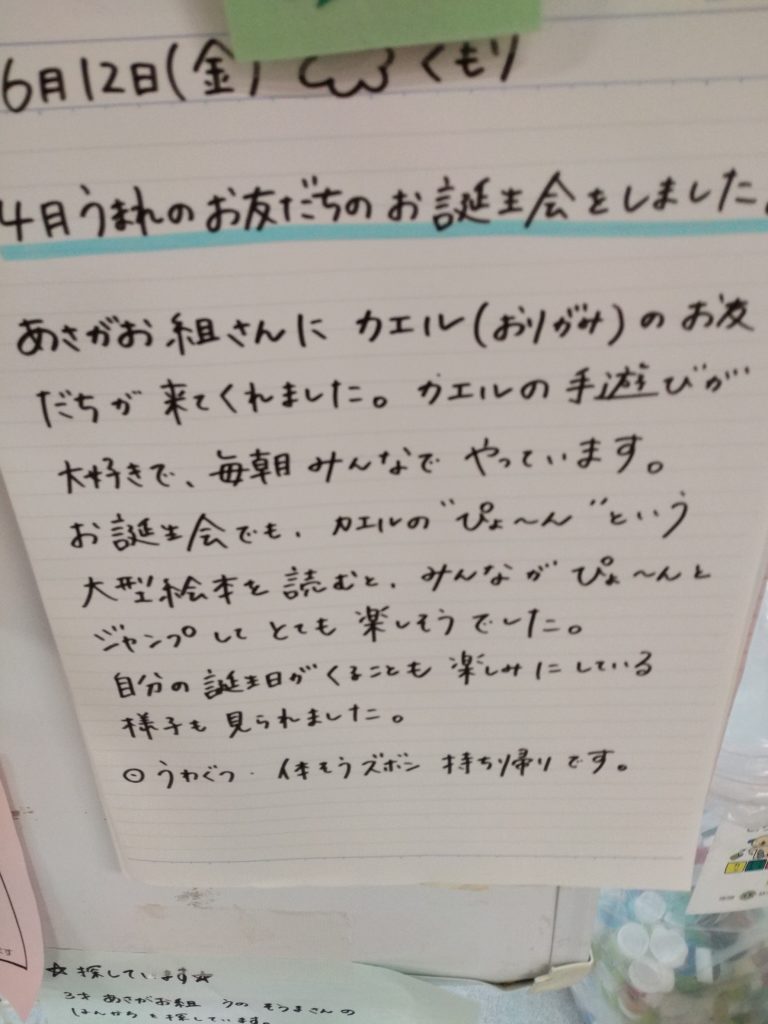 6月12日(金) くもり
4月うまれのお友だちのお誕生会をしました。
あさがお組さんに カエル(おりがみ)のお友
だちが 来てくれました。カエルの手遊びが
大好きで、毎朝みんなで やっています。
お誕生会でも、カエルの"ぴょ〜ん"という
大型絵本を 読むと、みんなが ぴょ〜んと
ジャンプして とても 楽しそうでした。
自分の 誕生日がくることも 楽しみにしている
様子も 見られました。
⊙うわぐつ・体そうズボン 持ち帰りです。
☆探しています☆
3才 あさがお組 うの そうまさんの
を探しています。